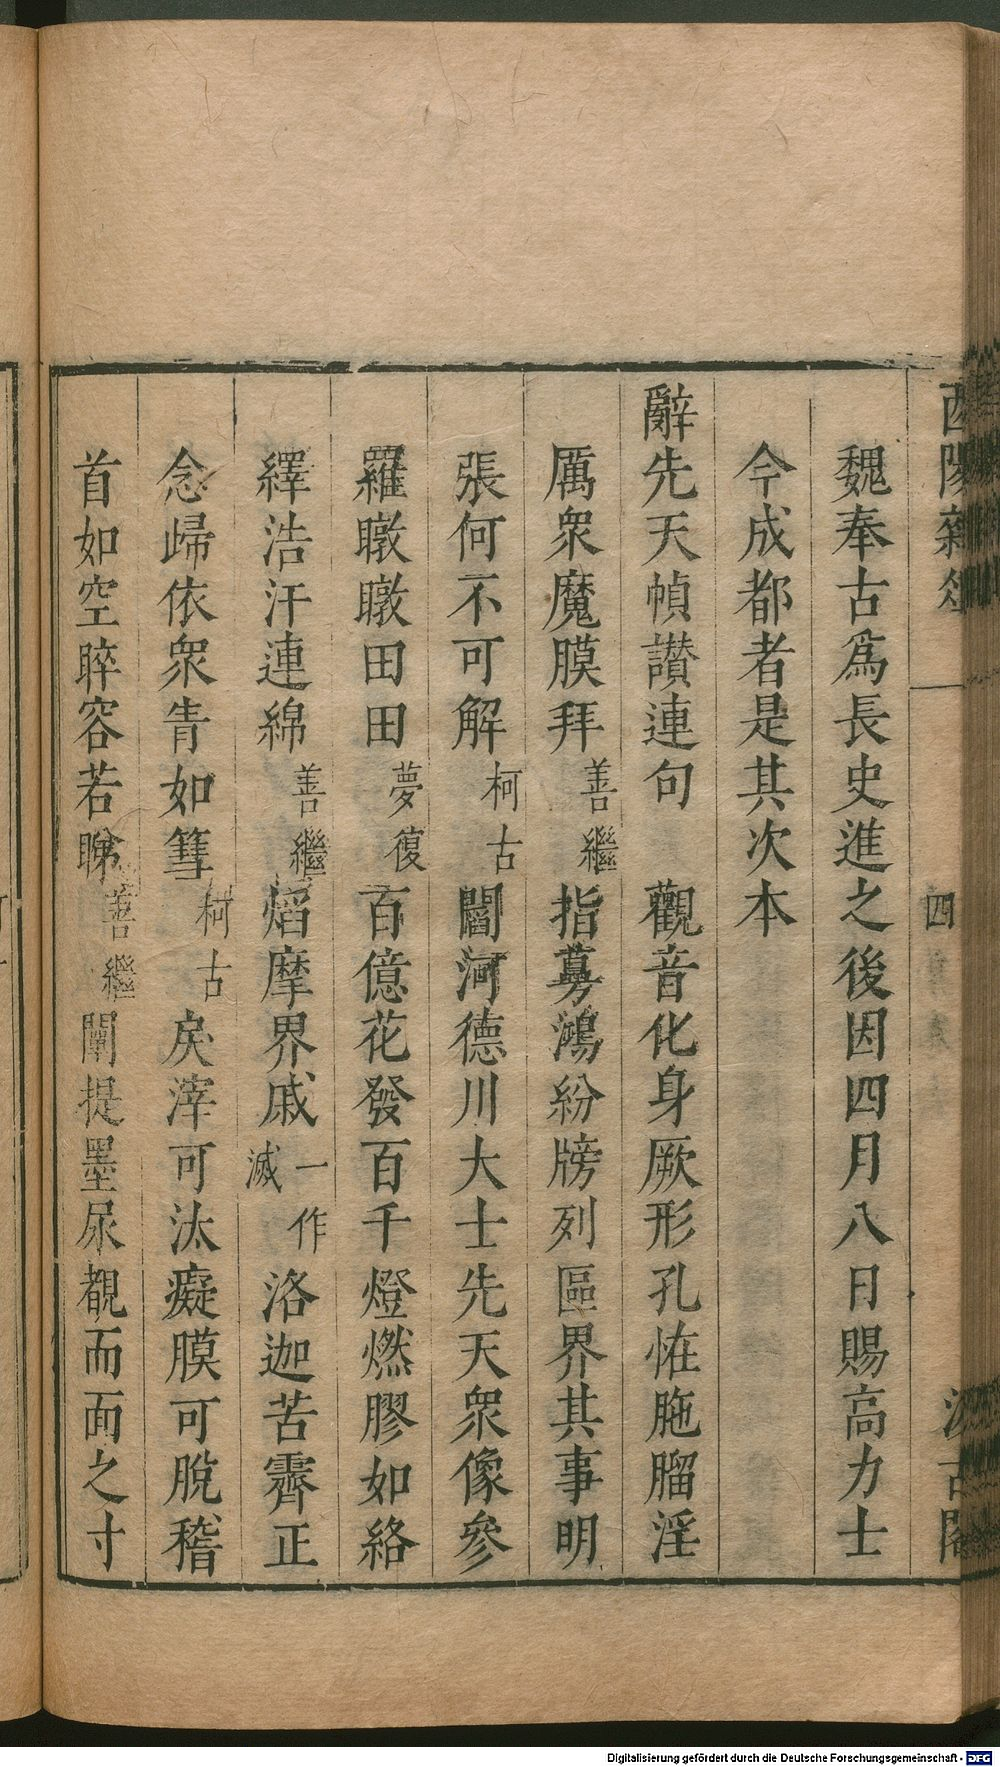 酉陽雜俎
四
汲古閣
魏奉古爲長史進之後因四月八日賜高力士
今成都者是其次本
辭先天幀讃連句 觀音化身厥形孔恠胣腷淫
厲衆魔膜拜善繼指夢鴻紛牓列區界其事明
張何不可解柯古閻河德川大士先天衆像參
羅暾暾田田夢復百億花發百千燈燃膠如絡
繹浩汗連綿善繼熖摩界戚一作滅洛迦苦霽正
念歸依衆眚如篲柯古戾滓可汰癡膜可脫稽
首如空睟容若睇善繼闡提墨尿覩而面之寸
Digitalisierung gefördert durch die Deutsche Forschungsgemeinschaft - DFG